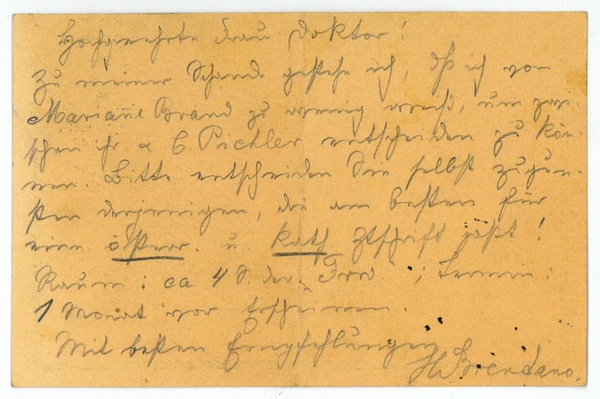 Hochgeehrte Frau Doktor!
Zu meiner Schande gestehe ich, dß ich von
Mariane Brand zu wenig weiß, um zwi-
schen ihr & C Pichler entscheiden zu kön-
nen. Bitte entscheiden Sie selbst zugun-
sten derjenigen, die am besten für
eine österr. u. kath Ztschrift paßt!
Raum: ca 4 S. der ; Termin:
1 Monat vor Erscheinen.
Mit besten Empfehlungen